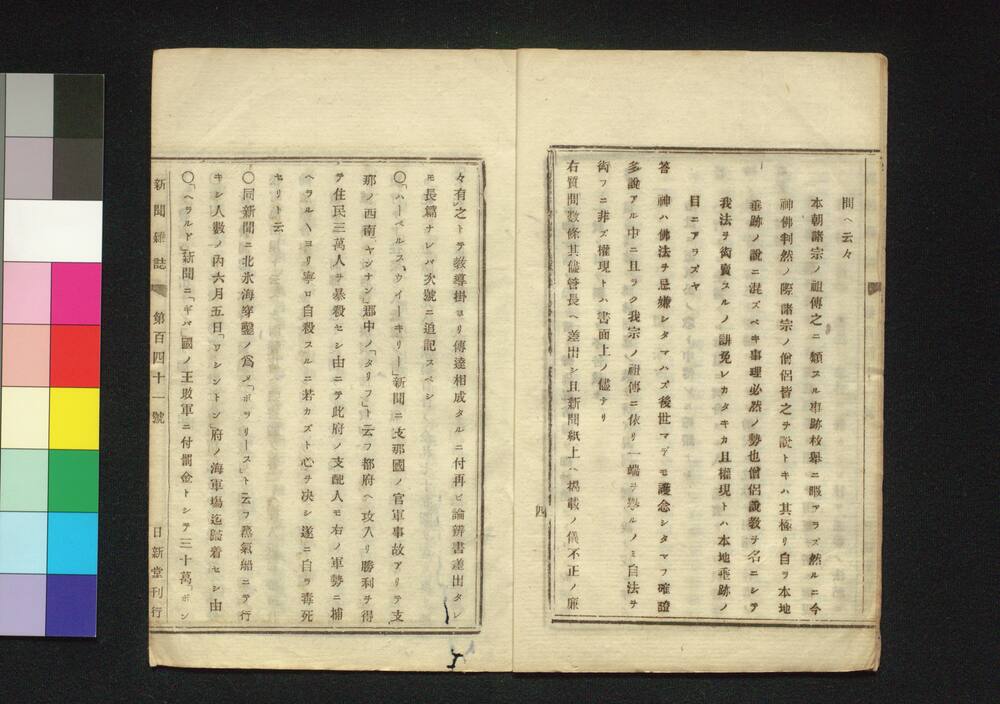 問ヘ云々
本朝諸宗ノ祖傳之ニ類スル事跡枚舉ニ暇アラズ然ルニ今
神佛判然ノ際諸宗ノ僧侶皆之ヲ説トキハ其極リ自ラ本地
垂跡ノ説ニ混ズベキ事理必然ノ勢也僧侶説教ヲ名ニシテ
我法ヲ衒賣スルノ誹免レカタキカ且權現トハ本地垂跡ノ
目ニアラズヤ
答 神ハ佛法ヲ忌嫌シタマハズ後世マデモ護念シタマフ確證
多説アル中ニ且ラク我宗ノ祖傳ニ依リ一端ヲ擧ルノミ自法ヲ
衒フニ非ズ權現トハ書面上ノ儘ナリ
右質問數條其儘管長ヘ差出シ且新聞紙上ヘ掲載ノ儀不正ノ廉
四
々有之トテ教導掛ヨリ傳達相成タルニ付再ビ論辨書差出タレ
モ長篇ナレバ次號ニ追記スベシ
〇「ハーペルス、ウイーキリー」新聞ニ支那國ノ官軍事故アリテ支
那ノ西南「ヤンナン」郡中ノ「タリフ」ト云フ都府ヘ攻入リ勝利ヲ得
テ住民三萬人ヲ暴殺セシ由ニテ此府ノ支配人モ右ノ軍勢ニ捕
ヘラルヽヨリ寧ロ自殺スルニ若カズト心ヲ决シ遂ニ自ラ毒死
セリト云
〇同新聞ニ北氷海穿鑿ノ爲メ「ポラリース」ト云フ蒸氣船ニテ行
キシ人數ノ内六月五日「ワシントン」府ノ海軍場迄歸着セシ由
〇「ヘラルド」新聞ニ「ギバ」國ノ王敗軍ニ付償金トシテ三十萬「ポン
新聞雜誌 第百四十一號 日新堂刊行